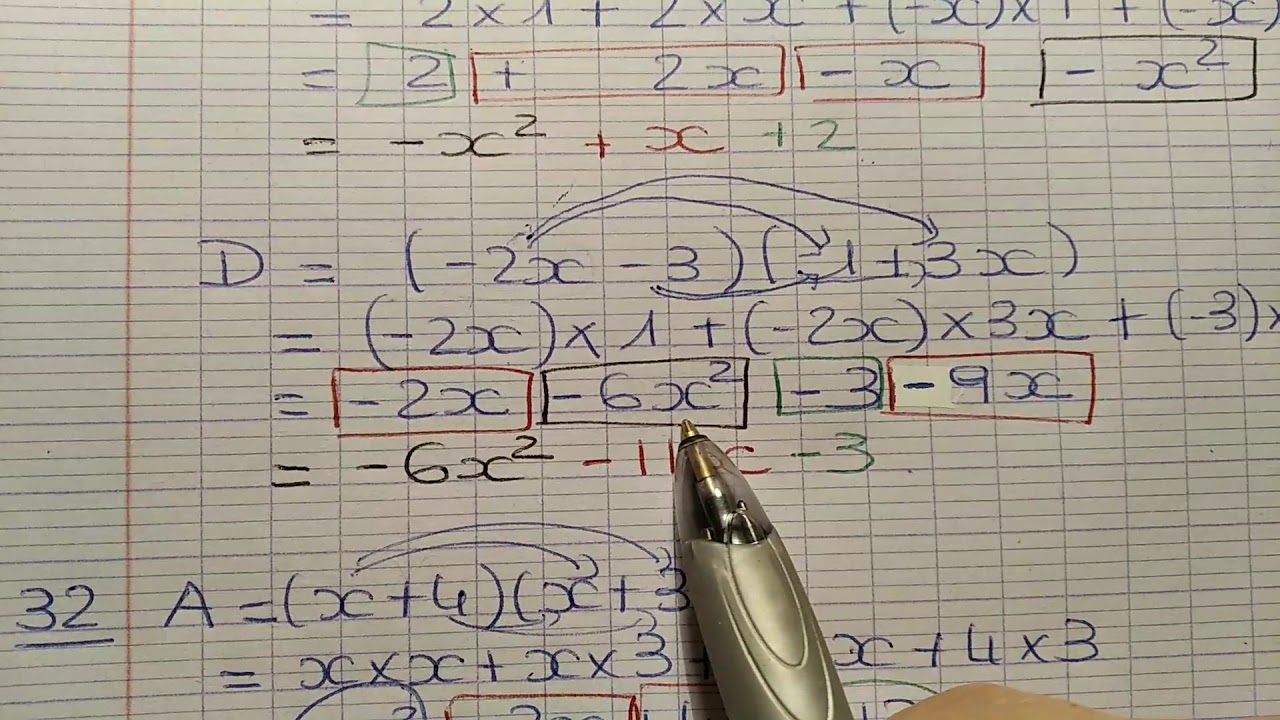 = 2 × 1 + 2 × x + (-x) × 1 + (-x)
= 2 + 2x - x - x²
= -x² + x + 2
D = (-2x - 3)(1 + 3x)
= (-2x) × 1 + (-2x) × 3x + (-3) ×
= -2x - 6x² - 3 - 9x
= -6x² - 11x - 3
32 A = (x + 4)(x + 3
= x × x + x × 3 x + 4 × 3